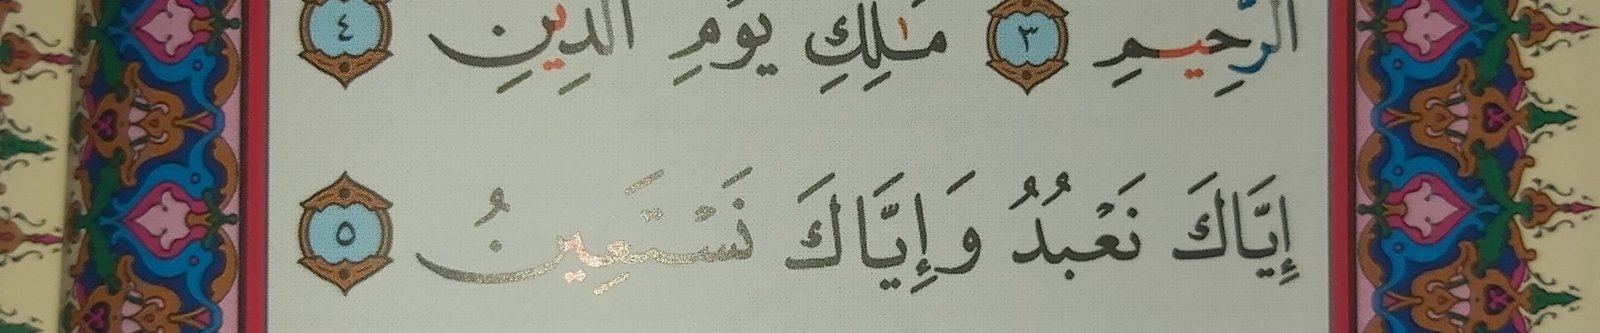 الرَّحِيمِ ٣ مَـٰلِكِ يَوْمِ الدِّينِ ٤
إِيَّاكَ نَعْبُدُ وَإِيَّاكَ نَسْتَعِينُ ٥